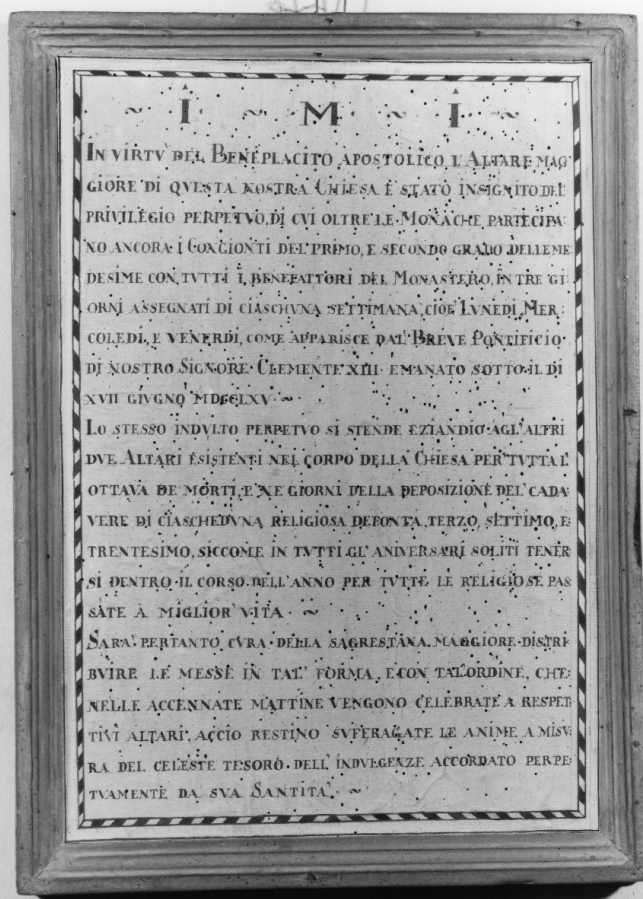 ~ I ~ M ~ I ~
IN VIRTV' DEL BENEPLACITO APOSTOLICO L'ALTARE MAG
GIORE DI QVESTA NOSTRA CHIESA È STATO INSIGNITO DEL
PRIVILEGIO PERPETVO, DI CVI OLTRE LE MONACHE PARTECIPA
NO ANCORA I CONGIONTI DEL PRIMO, E SECONDO GRADO DELLE ME
DESIME CON TVTTI I BENEFATTORI DEL MONASTERO, IN TRE GI
ORNI ASSEGNATI DI CIASCHVNA SETTIMANA, CIOE' LVNEDI, MER
COLEDI, E VENERDI, COME APPARISCE DAL BREVE PONTIFICIO
DI NOSTRO SIGNORE CLEMENTE XIII EMANATO SOTTO IL DI
XVII GIVGNO MDCCLXV ~
LO STESSO INDVLTO PERPETVO SI STENDE EZIANDIO AGL'ALTRI
DVE ALTARI ESISTENTI NEL CORPO DELLA CHIESA PER TVTTA L'
OTTAVA DE MORTI, E NE GIORNI DELLA DEPOSIZIONE DEL CADA
VERE DI CIASCHEDVNA RELIGIOSA DEFONTA, TERZO, SETTIMO, E
TRENTESIMO, SICCOME IN TVTTI GL'ANIVERSARI SOLITI TENER
SI DENTRO IL CORSO DELL'ANNO PER TVTTE LE RELIGIOSE PAS
SATE A MIGLIOR VITA ~
SARA' PERTANTO CVRA DELLA SAGRESTANA MAGGIORE DISTRI
BVIRE LE MESSE IN TAL' FORMA, E CON TAL'ORDINE, CHE
NELLE ACCENNATE MATTINE VENGONO CELEBRATE A RESPET
TIVI ALTARI, ACCIO RESTINO SVFFRAGATE LE ANIME A MISV
RA DEL CELESTE TESORO DELL'INDVLGENZE ACCORDATO PERPE
TVAMENTE DA SVA SANTITA' ~